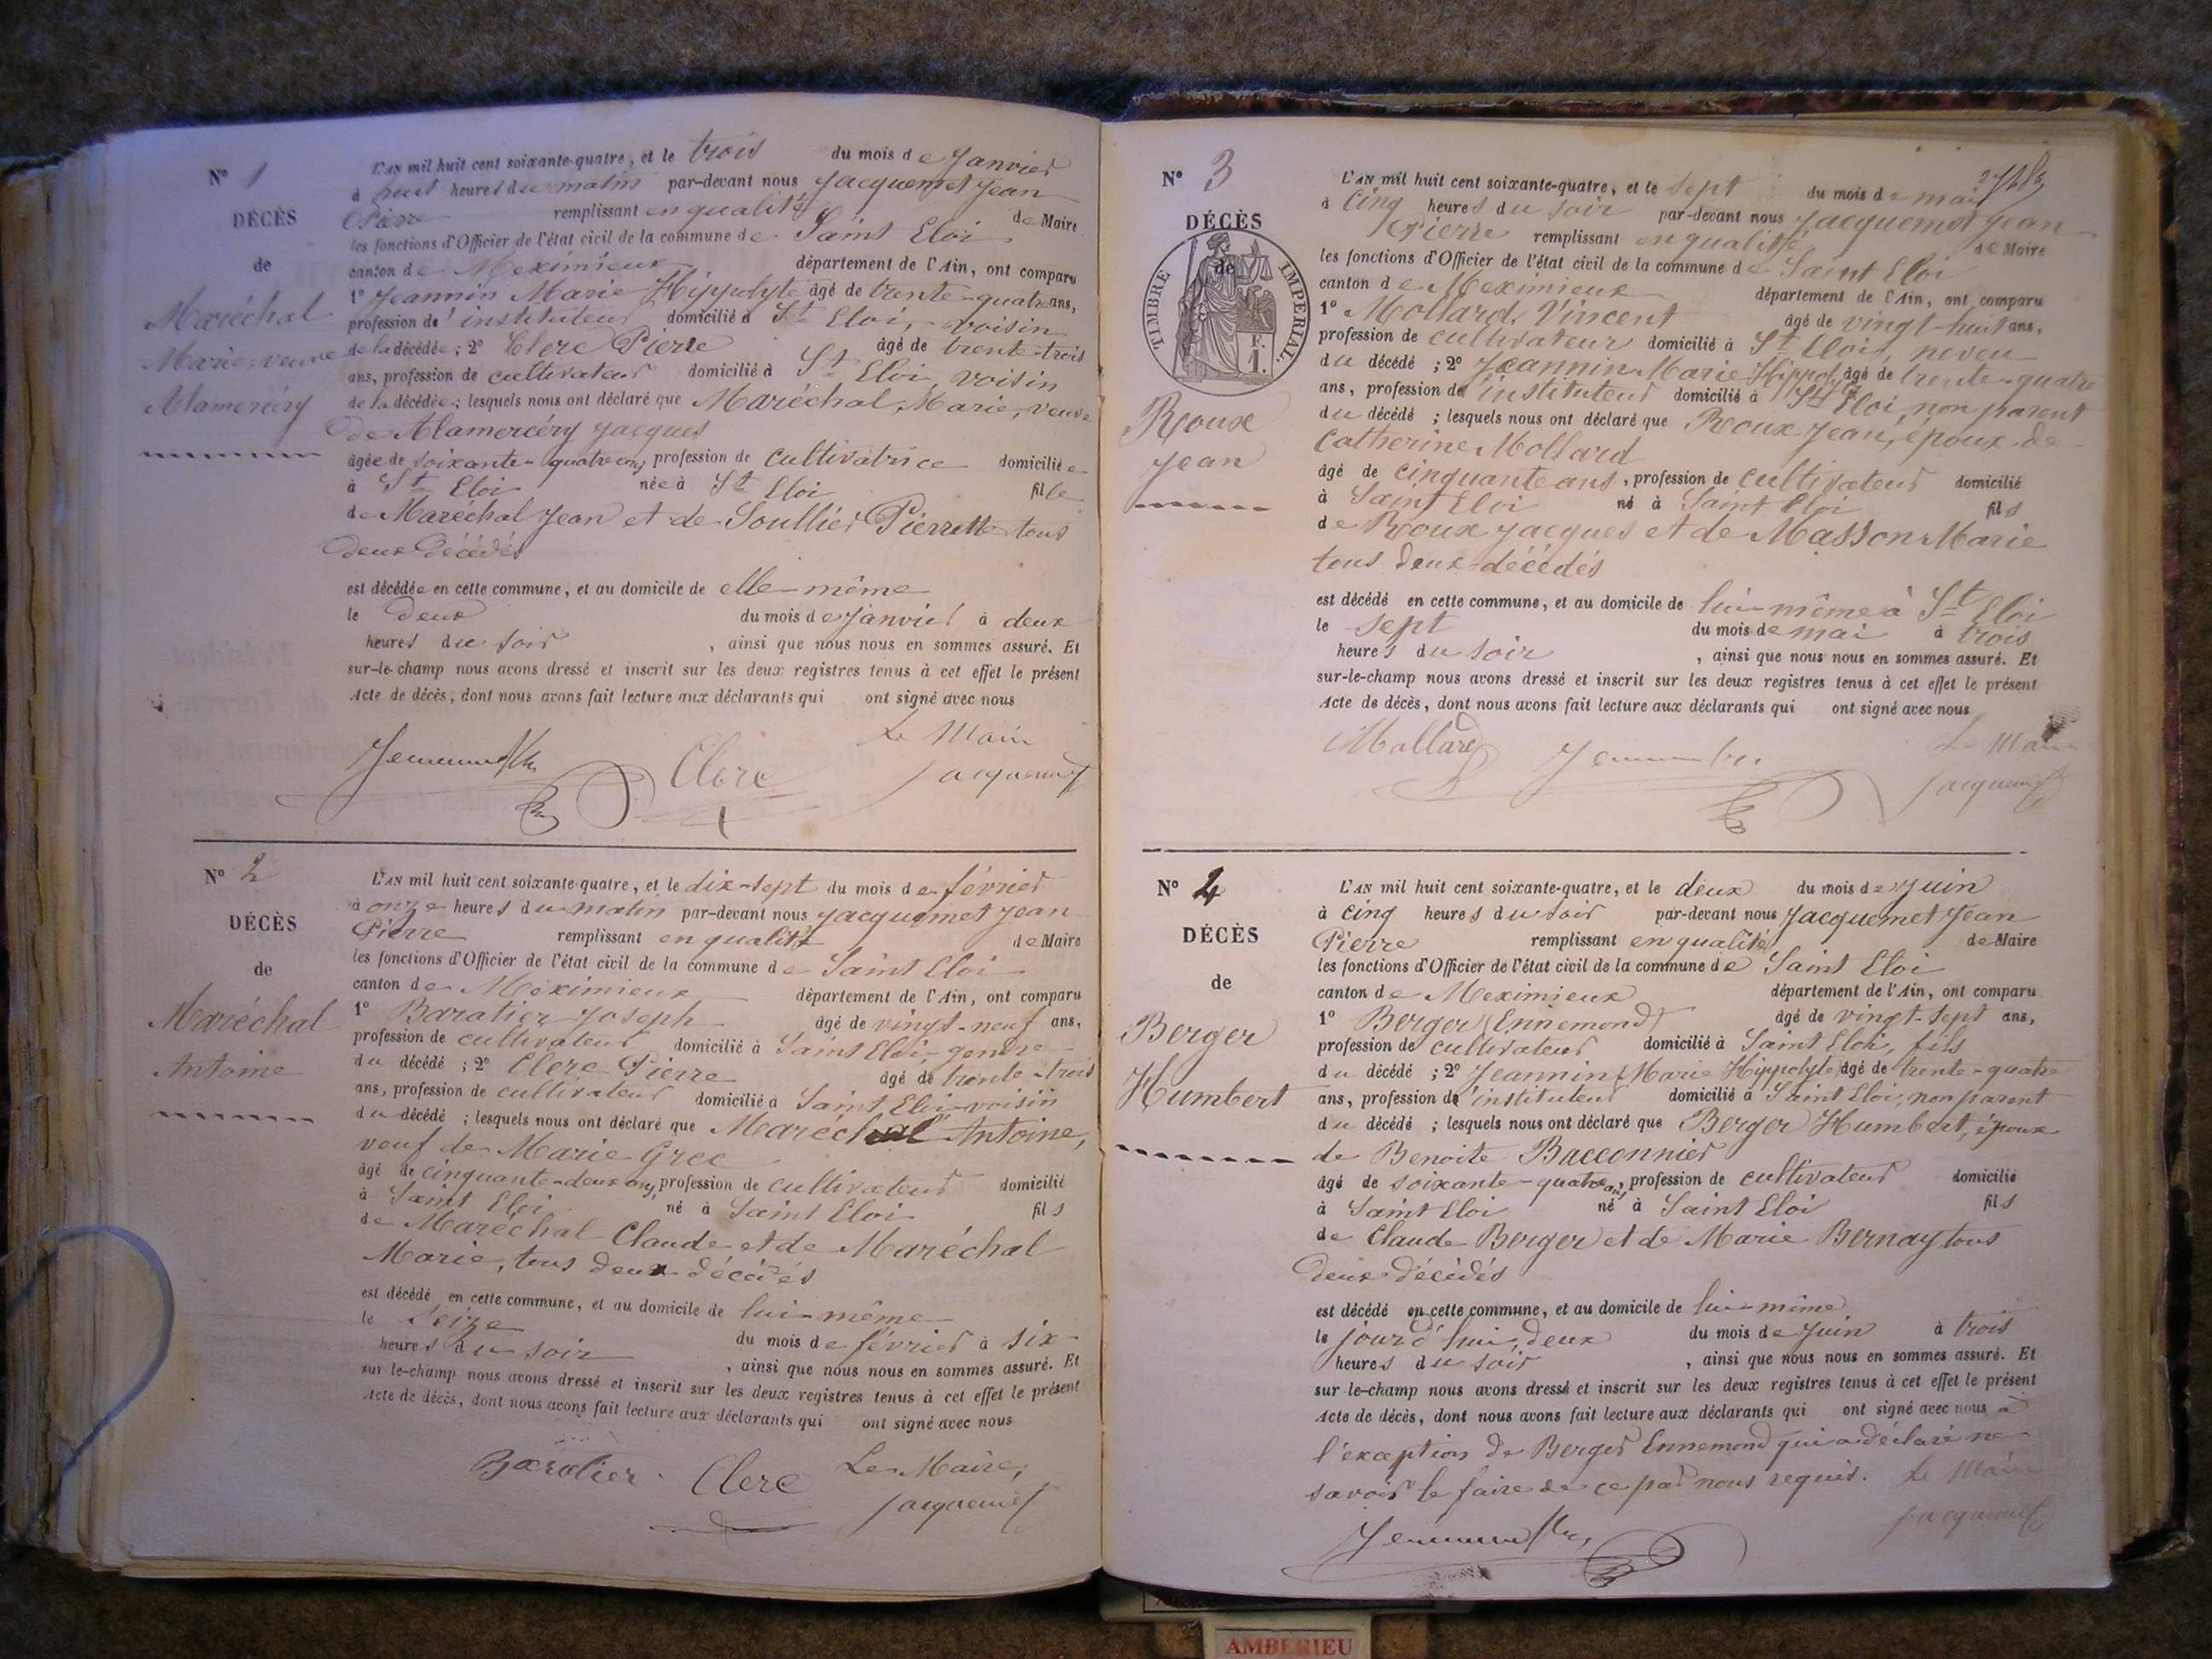 N° 1
DÉCÈS
de
Maréchal
Marie, veuve
Alamercéry
L'AN mil huit cent soixante-quatre, et le trois du mois de Janvier
à neuf heures du matin par-devant nous Jacquemet Jean
Pierre remplissant en qualité de Maire
les fonctions d'Officier de l'état civil de la commune de Saint Eloi
canton de Meximieux département de l'Ain, ont comparu
1° Jeannin Marie Hippolyte âgé de trente-quatre ans,
profession d'instituteur domicilié à St Eloi, voisin
de la décédée ; 2° Clerc Pierre âgé de trente-trois
ans, profession de cultivateur domicilié à St Eloi, voisin
de la décédée ; lesquels nous ont déclaré que Maréchal, Marie, veuve
de Alamercéry Jacques
âgée de soixante-quatre ans, profession de cultivatrice domiciliée
à St Eloi née à St Eloi fille
de Maréchal Jean et de Soullier Pierrette tous
deux décédés
est décédée en cette commune, et au domicile de elle-même
le deux du mois de Janvier à deux
heures du soir , ainsi que nous nous en sommes assuré. Et
sur-le-champ nous avons dressé et inscrit sur les deux registres tenus à cet effet le présent
Acte de décès, dont nous avons fait lecture aux déclarants qui ont signé avec nous
Le Maire
Clerc Jacquemet
N° 2
DÉCÈS
de
Maréchal
Antoine
L'AN mil huit cent soixante-quatre, et le dix-sept du mois de février
à onze heures du matin par-devant nous Jacquemet Jean
Pierre remplissant en qualité de Maire
les fonctions d'Officier de l'état civil de la commune de Saint Eloi
canton de Meximieux département de l'Ain, ont comparu
1° Baratier Joseph âgé de vingt-neuf ans,
profession de cultivateur domicilié à Saint Eloi, gendre
du décédé ; 2° Clerc Pierre âgé de trente-trois
ans, profession de cultivateur domicilié à Saint Eloi, voisin
du décédé ; lesquels nous ont déclaré que Maréchal Antoine,
veuf de Marie Grec
âgé de cinquante-deux ans, profession de cultivateur domicilié
à Saint Eloi né à Saint Eloi fils
de Maréchal Claude et de Maréchal
Marie, tous deux décédés
est décédé en cette commune, et au domicile de lui-même
le Seize du mois de février à six
heures du soir , ainsi que nous nous en sommes assuré. Et
sur-le-champ nous avons dressé et inscrit sur les deux registres tenus à cet effet le présent
Acte de décès, dont nous avons fait lecture aux déclarants qui ont signé avec nous
Baratier Clerc Le Maire,
Jacquemet
N° 3
DÉCÈS
de
TIMBRE IMPERIAL.
F.
1.
Roux
Jean
L'AN mil huit cent soixante-quatre, et le sept du mois de mai
à cinq heures du soir par-devant nous Jacquemet Jean
Pierre remplissant en qualité de Maire
les fonctions d'Officier de l'état civil de la commune de Saint Eloi
canton de Meximieux département de l'Ain, ont comparu
1° Mollard, Vincent âgé de vingt-huit ans,
profession de cultivateur domicilié à St Eloi, neveu
du décédé ; 2° Jeannin Marie Hippolyte âgé de trente-quatre
ans, profession d'instituteur domicilié à St Eloi, non parent
du décédé ; lesquels nous ont déclaré que Roux Jean, époux de
Catherine Mollard
âgé de cinquante ans, profession de cultivateur domicilié
à Saint Eloi né à Saint Eloi fils
de Roux Jacques et de Masson Marie
tous deux décédés
est décédé en cette commune, et au domicile de lui-même à St Eloi
le sept du mois de mai à trois
heures du soir , ainsi que nous nous en sommes assuré. Et
sur-le-champ nous avons dressé et inscrit sur les deux registres tenus à cet effet le présent
Acte de décès, dont nous avons fait lecture aux déclarants qui ont signé avec nous
Mollard Le Maire
Jacquemet
N° 4
DÉCÈS
de
Berger
Humbert
L'AN mil huit cent soixante-quatre, et le deux du mois de Juin
à cinq heures du soir par-devant nous Jacquemet Jean
Pierre remplissant en qualité de Maire
les fonctions d'Officier de l'état civil de la commune de Saint Eloi
canton de Meximieux département de l'Ain, ont comparu
1° Berger (Ennemond) âgé de vingt-sept ans,
profession de cultivateur domicilié à Saint Eloi, fils
du décédé ; 2° Jeannin (Marie Hippolyte) âgé de trente-quatre
ans, profession d'instituteur domicilié à Saint Eloi, non parent
du décédé ; lesquels nous ont déclaré que Berger Humbert, époux
de Benoite Bacconnier
âgé de soixante-quatre ans, profession de cultivateur domicilié
à Saint Eloi né à Saint Eloi fils
de Claude Berger et de Marie Bernay tous
deux décédés
est décédé en cette commune, et au domicile de lui-même
le jourd'hui, deux du mois de Juin à trois
heures du soir , ainsi que nous nous en sommes assuré. Et
sur-le-champ nous avons dressé et inscrit sur les deux registres tenus à cet effet le présent
Acte de décès, dont nous avons fait lecture aux déclarants qui ont signé avec nous à
l'exception de Berger Ennemond qui a déclaré ne
savoir le faire de ce par nous requis. Le Maire
Jacquemet
AMBERIEU